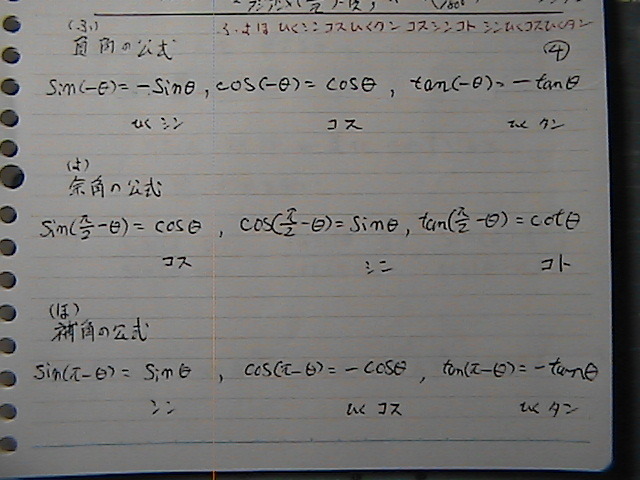 ふ・よ・ほ ひくシンコスひくタン コスシンコト シンひくコスひくタン
(ふ)
負角の公式 ④
Sin(-θ)= -Sinθ, cos(-θ)= cosθ, tan(-θ)= -tanθ
ひくシン コス ひくタン
(よ)
余角の公式
Sin(π/2-θ)= cosθ, cos(π/2-θ)= Sinθ, tan(π/2-θ)= cotθ
コス シン コト
(ほ)
補角の公式
Sin(π-θ)= Sinθ, cos(π-θ)= -cosθ, tan(π-θ)= -tanθ
シン ひくコス ひくタン